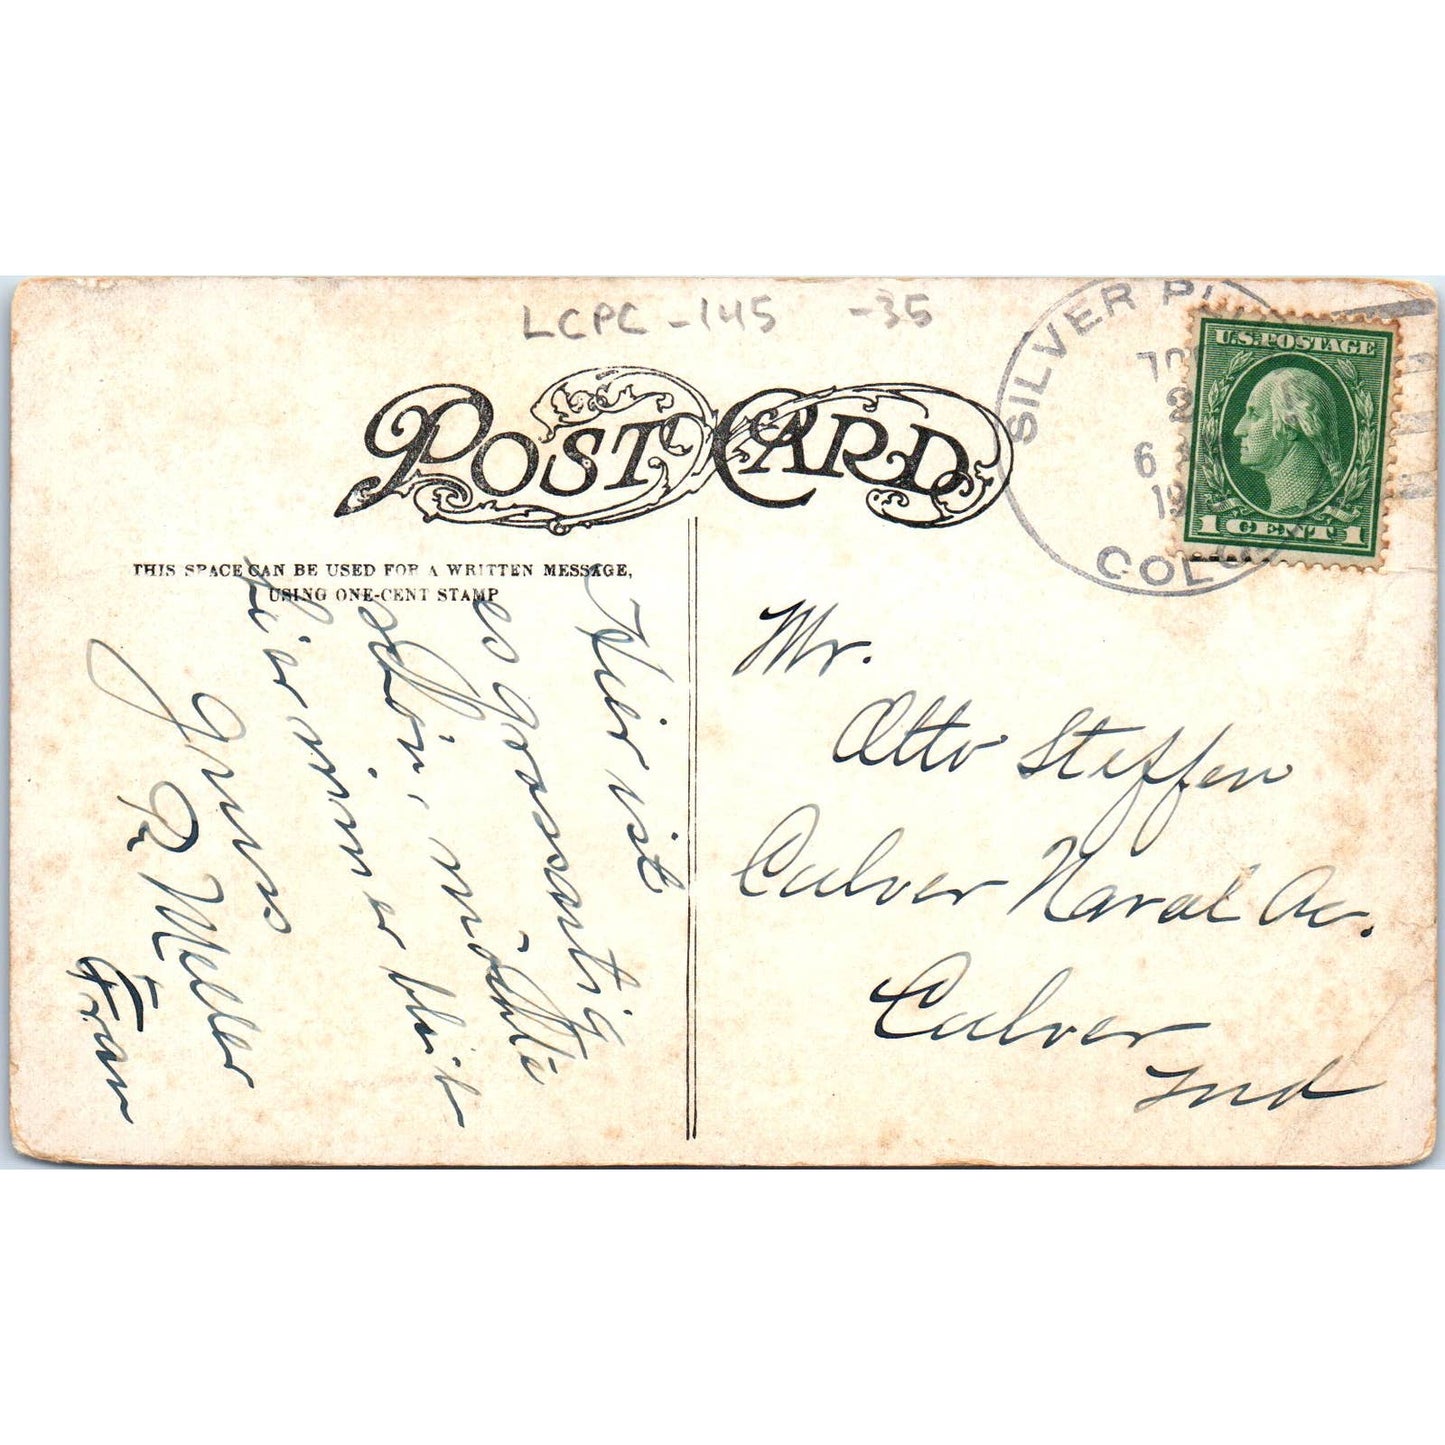 LCPC -145 -35
POST CARD
SILVER PL
6
19
COLO
U.S. POSTAGE
1 CENT 1
THIS SPACE CAN BE USED FOR A WRITTEN MESSAGE,
USING ONE-CENT STAMP
Hier ist
es grossartig
schön, möchte
hier immer bleib
Gruss
R Meller
Fran
Mr.
Otto Steffen
Culver Naval Ac.
Culver
Ind